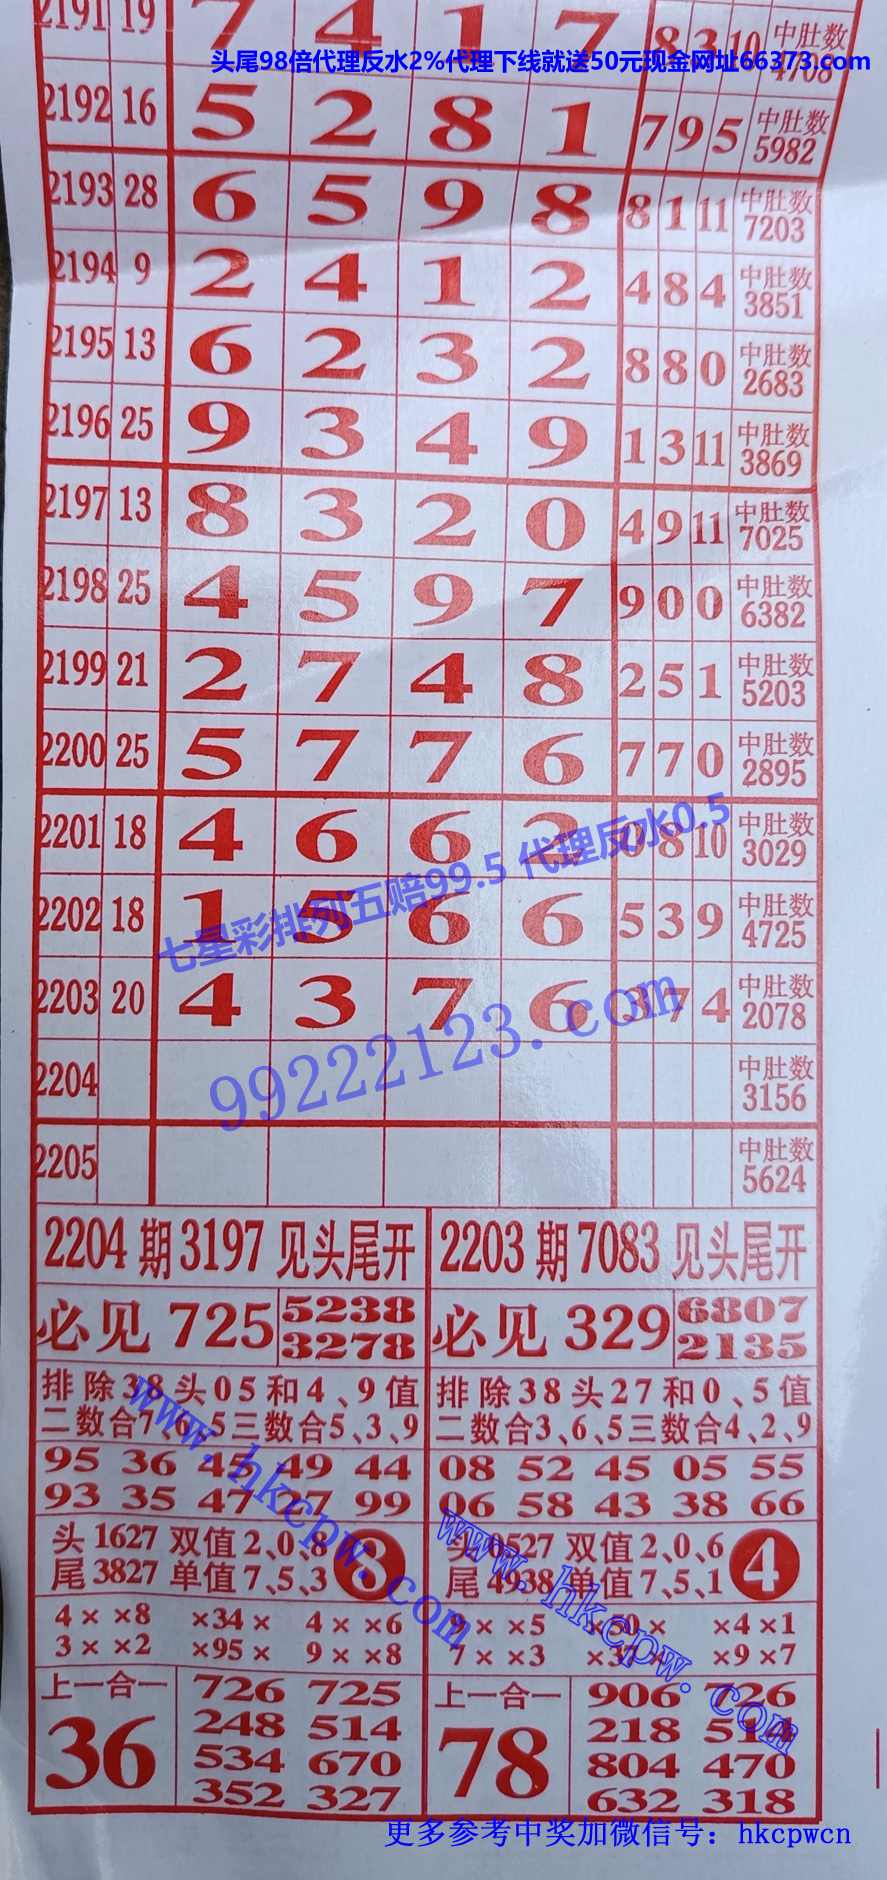 2191 19 7 4 1 7 8 3 10 中肚数 4708
头尾98倍代理反水2%代理下线就送50元现金网址66373.com
2192 16 5 2 8 1 7 9 5 中肚数 5982
2193 28 6 5 9 8 8 1 11 中肚数 7203
2194 9 2 4 1 2 4 8 4 中肚数 3851
2195 13 6 2 3 2 8 8 0 中肚数 2683
2196 25 9 3 4 9 1 3 11 中肚数 3869
2197 13 8 3 2 0 4 9 11 中肚数 7025
2198 25 4 5 9 7 9 0 0 中肚数 6382
2199 21 2 7 4 8 2 5 1 中肚数 5203
2200 25 5 7 7 6 7 7 0 中肚数 2895
2201 18 4 6 6 2 0 8 10 中肚数 3029
七星彩排列五赔99.5 代理反水0.5
2202 18 1 5 6 6 5 3 9 中肚数 4725
2203 20 4 3 7 6 3 7 4 中肚数 2078
99222123.com
2204 中肚数 3156
2205 中肚数 5624
2204期3197见头尾开
必见725 5238
3278
排除38头05和4、9值
二数合7、6、5三数合5、3、9
95 36 45 49 44
93 35 47 27 99
头1627 双值2、0、8
尾3827 单值7、5、3
3
4××8 ×34× 4××6
3××2 ×95× 9××8
上一合一
36
726 725
248 514
534 670
352 327
2203期7083见头尾开
必见329 6807
2135
排除38头27和0、5值
二数合3、6、5三数合4、2、9
08 52 45 05 55
06 58 43 38 66
头0527 双值2、0、6
尾4938 单值7、5、1
4
9××5 ×50× ×4×1
7××3 ×37× ×9×7
上一合一
78
906 726
218 514
804 470
632 318
www.hkcpw.com
www.hkcpw.com
更多参考中奖加微信号：hkcpwcn